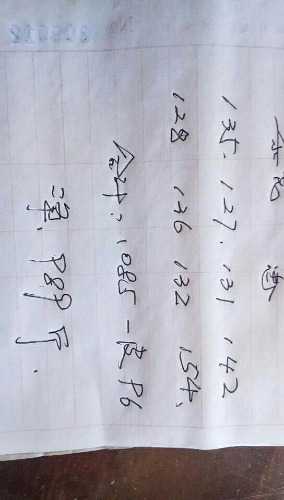 135. 127. 131 142
128 136 132 154.
合计: 1085 - 皮 96
净. 989 斤.